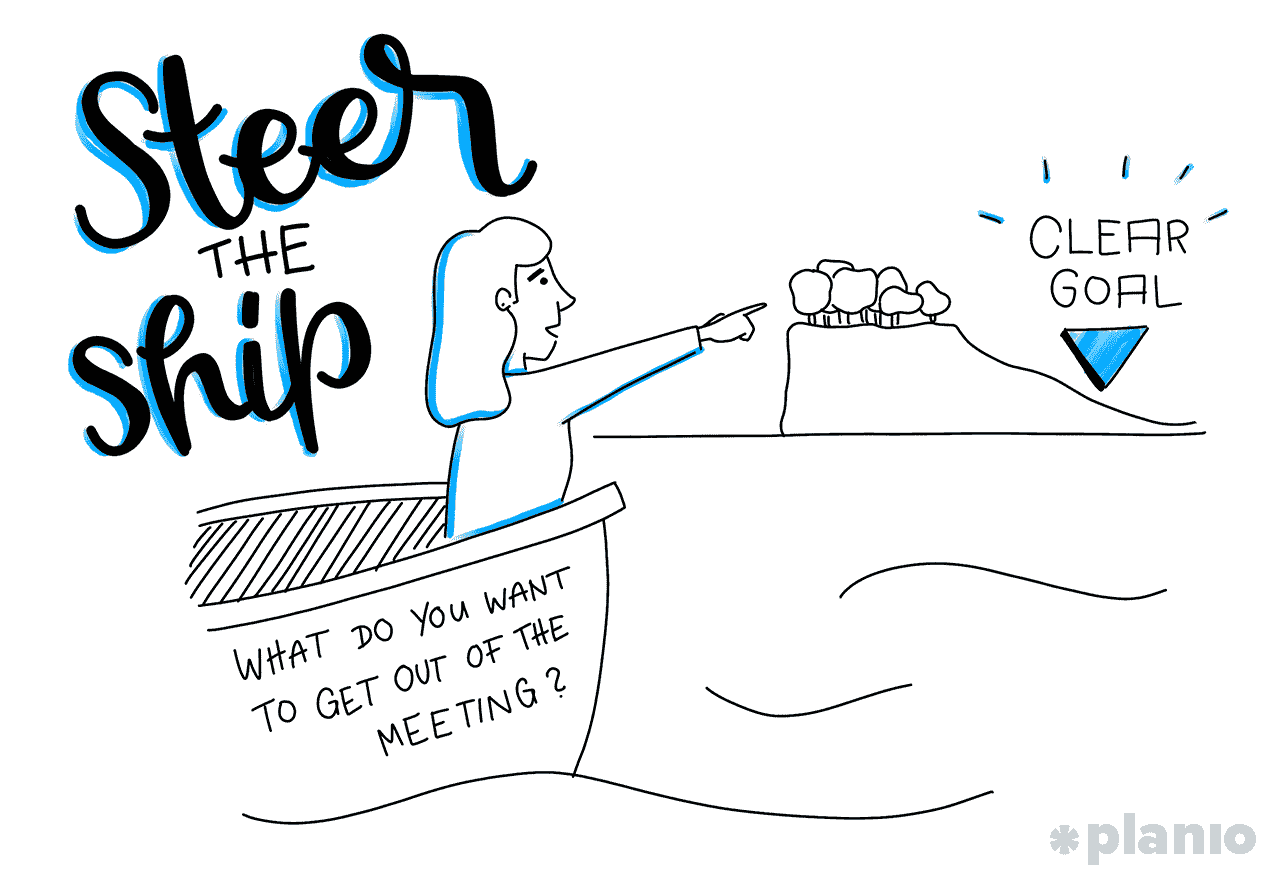 Steer
THE
ship
CLEAR
GOAL
WHAT DO YOU WANT
TO GET OUT OF THE
MEETING?
planio